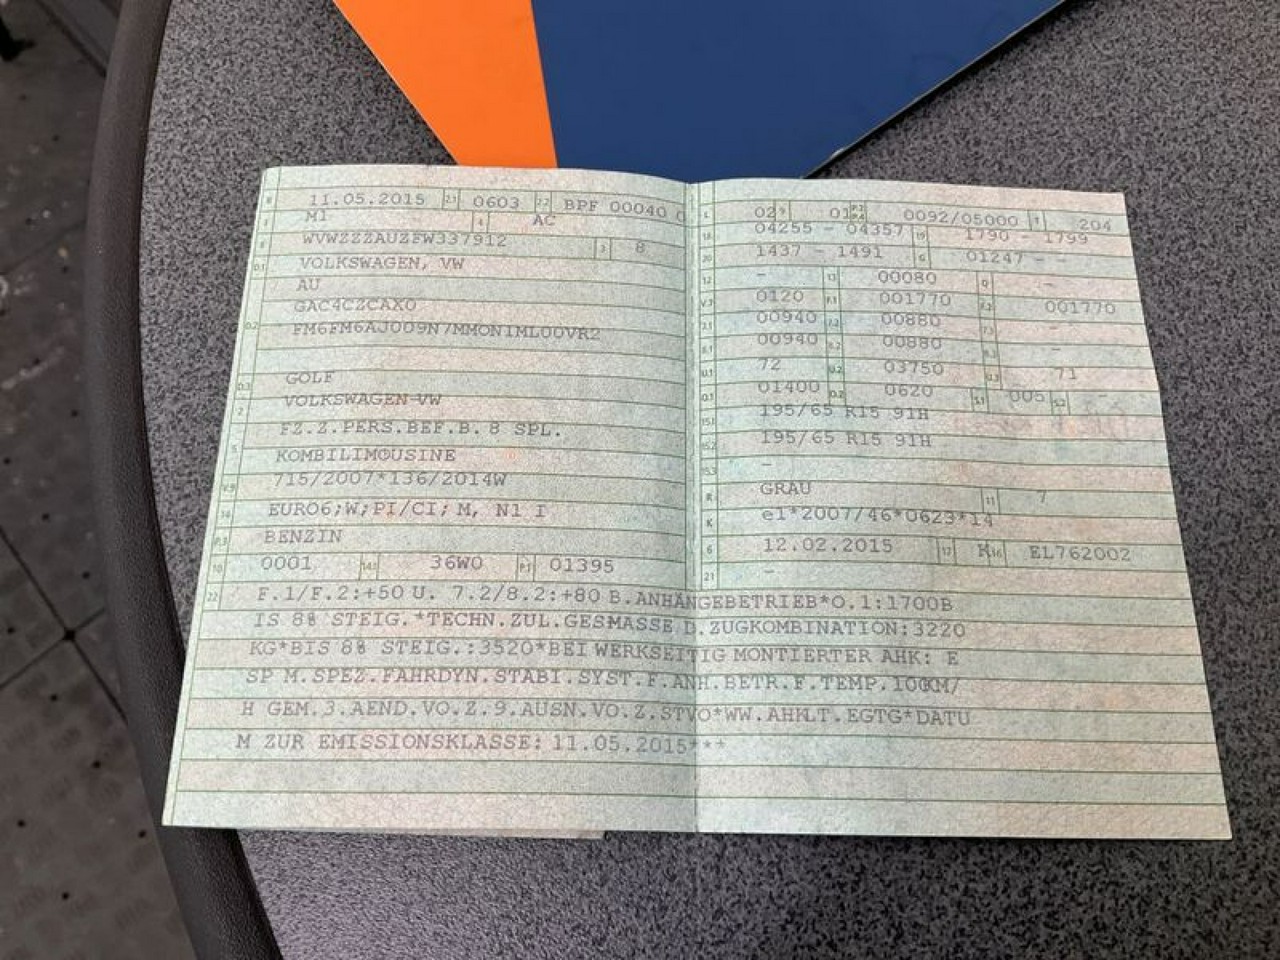 B 11.05.2015 2.1 0603 2.2 BPF 00040
J M1 4 AC
E WVWZZZAUZFW337912 3 8
D.1 VOLKSWAGEN, VW
AU
D.2 GAC4CZCAX0
FM6FM6AJ009N7MMON1ML00VR2
D.3 GOLF
2 VOLKSWAGEN-VW
5 FZ.Z.PERS.BEF.B. 8 SPL.
KOMBILIMOUSINE
V.9 715/2007*136/2014W
14 EURO6;W;PI/CI; M, N1 I
P.3 BENZIN
10 0001 14.1 36W0 P.1 01395
L 02 9 01 P.2 P.4 0092/05000 T 204
18 04255 - 04357 19 1790 - 1799
20 1437 - 1491 G 01247 - -
12 - 13 00080 Q -
V.7 0120 F.1 001770 F.2 001770
7.1 00940 7.2 00880 7.3 -
8.1 00940 8.2 00880 8.3 -
U.1 72 U.2 03750 U.3 71
O.1 01400 O.2 0620 S.1 005 S.2 -
15.1 195/65 R15 91H
15.2 195/65 R15 91H
15.3 -
R GRAU 11 7
K e1*2007/46*0623*14
6 12.02.2015 17 K 16 EL762002
21 -
22 F.1/F.2:+50 U. 7.2/8.2:+80 B.ANHÄNGEBETRIEB*O.1:1700B
IS 8% STEIG.*TECHN.ZUL.GESMASSE D.ZUGKOMBINATION:3220
KG*BIS 8% STEIG.:3520*BEI WERKSEITIG MONTIERTER AHK: E
SP M.SPEZ.FAHRDYN.STABI.SYST.F.ANH.BETR.F.TEMP.100KM/
H GEM.3.AEND.VO.Z.9.AUSN.VO.Z.STVO*WW.AHK.T.EGTG*DATU
M ZUR EMISSIONSKLASSE: 11.05.2015***